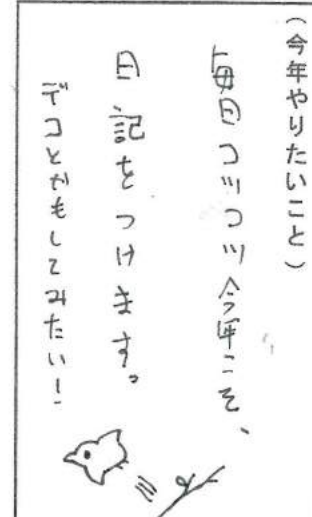 （今年やりたいこと）
毎日コツコツ今年こそ、
日記をつけます。
デコとかもしてみたい！